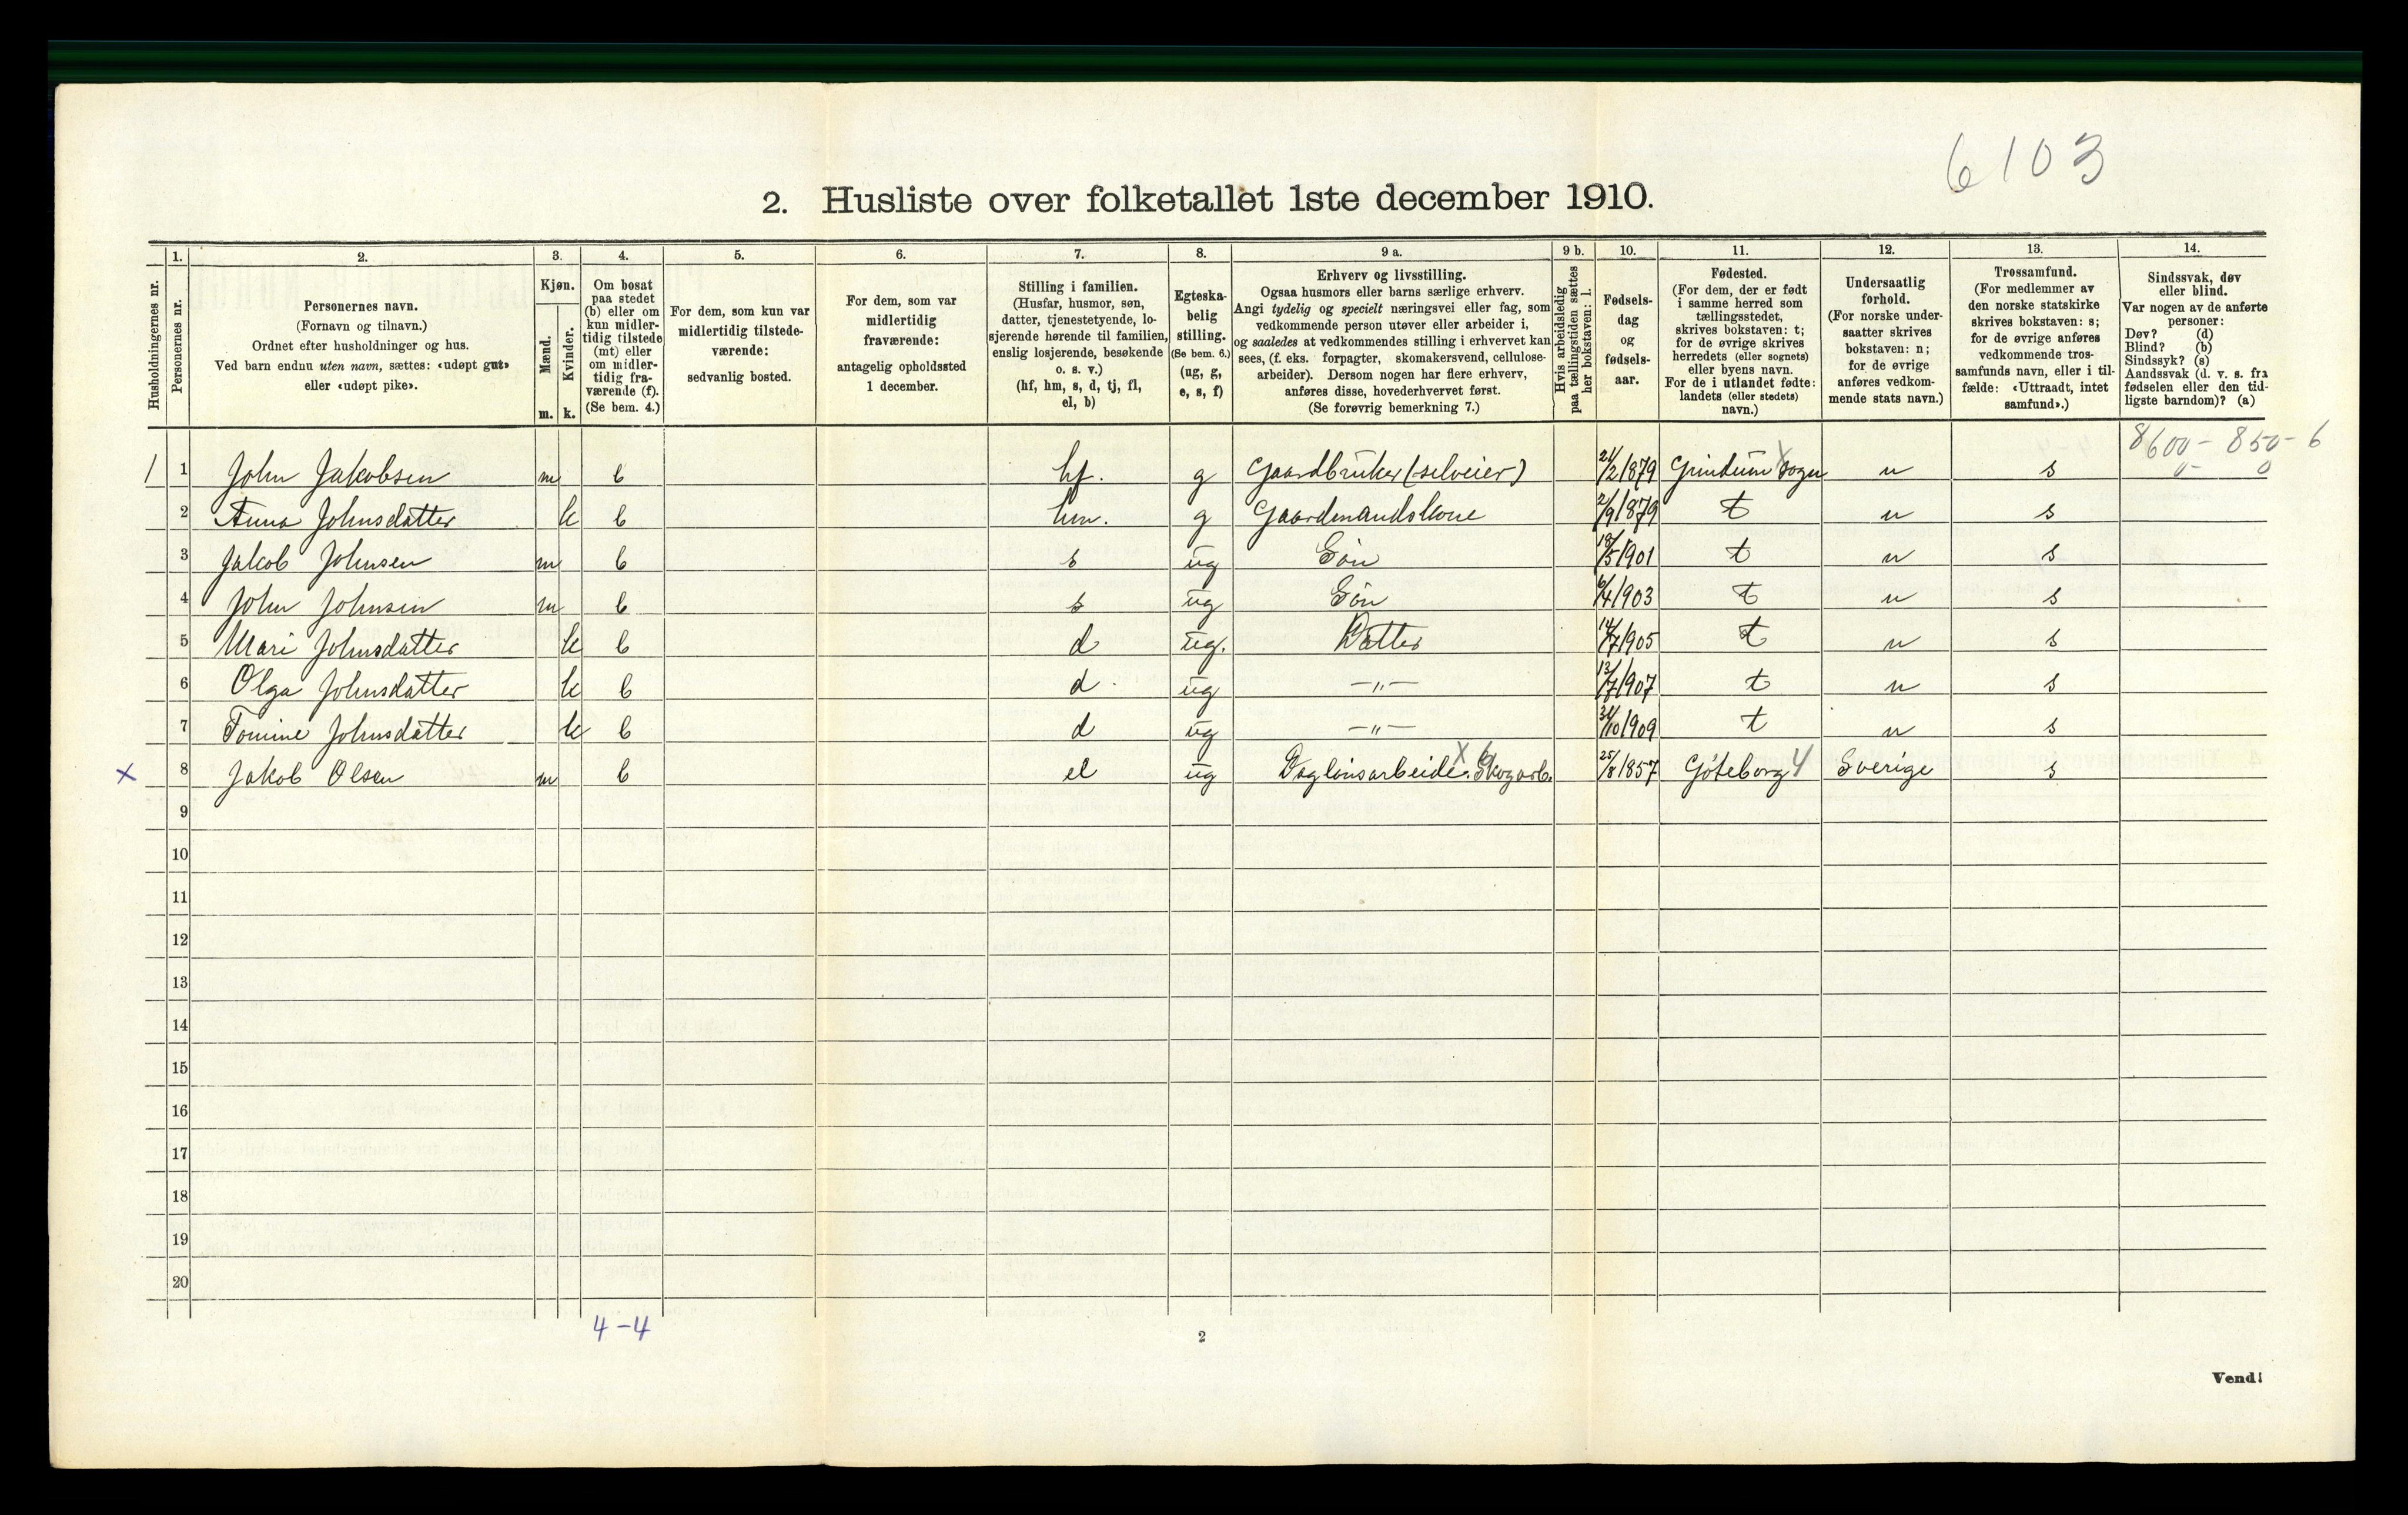 6103
2. Husliste over folketallet 1ste december 1910.
Husholdningernes nr.
1.
Personernes nr.
2.
Personernes navn.
(Fornavn og tilnavn.)
Ordnet efter husholdninger og hus.
Ved barn endnu uten navn, sættes: «udøpt gut»
eller «udøpt pike».
3.
Kjøn.
Mænd.
Kvinder.
m. k.
4.
Om bosat
paa stedet
(b) eller om
kun midler-
tidig tilstede
(mt) eller
om midler-
tidig fra-
værende (f).
(Se bem. 4.)
5.
For dem, som kun var
midlertidig tilstede-
værende:
sedvanlig bosted.
6.
For dem, som var
midlertidig
fraværende:
antagelig opholdssted
1 december.
7.
Stilling i familien.
(Husfar, husmor, søn,
datter, tjenestetyende, lo-
sjerende hørende til familien,
enslig losjerende, besøkende
o. s. v.)
(hf, hm, s, d, tj, fl,
el, b)
8.
Egteska-
belig
stilling.
(Se bem. 6.)
(ug, g,
e, s, f)
9 a.
Erhverv og livsstilling.
Ogsaa husmors eller barns særlige erhverv.
Angi tydelig og specielt næringsvei eller fag, som
vedkommende person utøver eller arbeider i,
og saaledes at vedkommendes stilling i erhvervet kan
sees, (f. eks. forpagter, skomakersvend, cellulose-
arbeider). Dersom nogen har flere erhverv,
anføres disse, hovederhvervet først.
(Se forøvrig bemerkning 7.)
9 b.
Hvis arbeidsledig
paa tællingstiden sættes
her bokstaven: l.
10.
Fødsels-
dag
og
fødsels-
aar.
11.
Fødested.
(For dem, der er født
i samme herred som
tællingsstedet,
skrives bokstaven: t;
for de øvrige skrives
herredets (eller sognets)
eller byens navn.
For de i utlandet fødte:
landets (eller stedets)
navn.)
12.
Undersaatlig
forhold.
(For norske under-
saatter skrives
bokstaven: n;
for de øvrige
anføres vedkom-
mende stats navn.)
13.
Trossamfund.
(For medlemmer av
den norske statskirke
skrives bokstaven: s;
for de øvrige anføres
vedkommende tros-
samfunds navn, eller i til-
fælde: «Uttraadt, intet
samfund».)
14.
Sindssvak, døv
eller blind.
Var nogen av de anførte
personer:
Døv? (d)
Blind? (b)
Sindssyk? (s)
Aandssvak (d. v. s. fra
fødselen eller den tid-
ligste barndom)? (a)
8600 - 850 - 6
0 - 0
1 1 John Jakobsen m b hf. g Gaardbruker (selveier) 21/2 1879 Grindum X Sogn n s
2 Anna Johnsdatter k b hm. g Gaardmandskone 2/9 1879 t n s
3 Jakob Johnsen m b s ug Søn 18/5 1901 t n s
4 John Johnsen m b s ug Søn 6/4 1903 t n s
5 Mari Johnsdatter k b d ug. Datter 14/7 1905 t n s
6 Olga Johnsdatter k b d ug —„— 13/7 1907 t n s
7 Tomine Johnsdatter k b d ug —„— /10 1909 t n s
X 8 Jakob Olsen m b el ug Daglønsarbeide. X Skogarb. 25/8 1857 Göteborg 4 Sverige s
9
10
11
12
13
14
15
16
17
18
19
20
4-4
2
Vend!